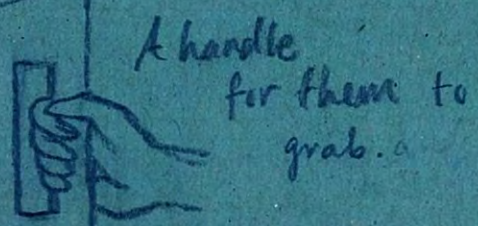 A handle
for them to
grab.